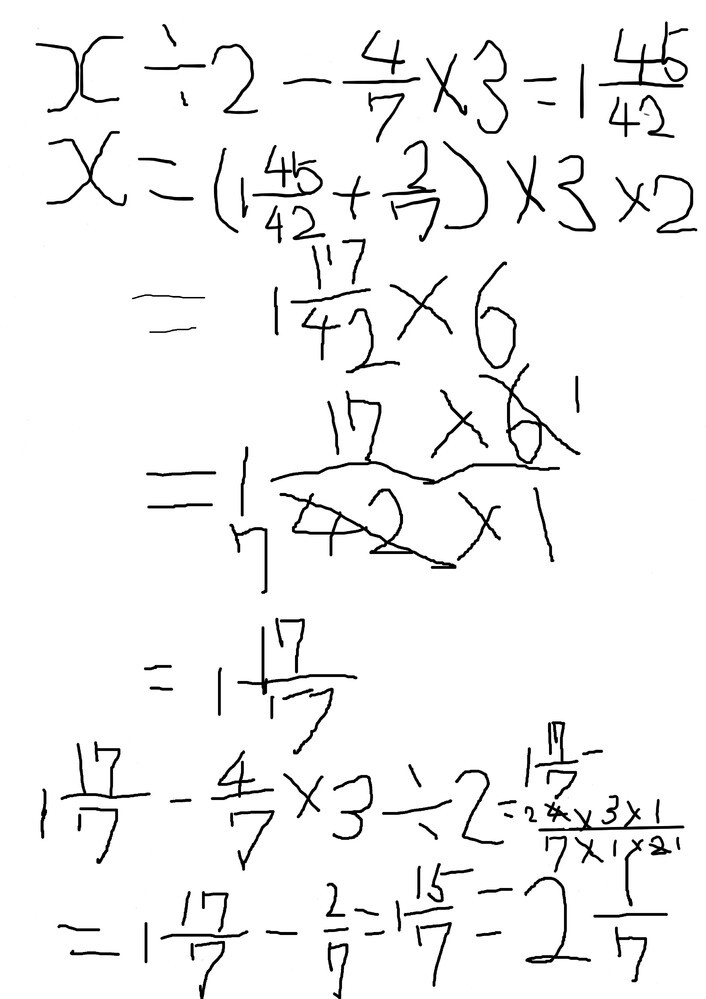 x ÷ 2 - 4/7 × 3 = 1 45/42
x = (1 45/42 + 2/7) × 3 × 2
= 1 17/42 × 6
= 1 17 × 6 1 / 7 42 × 1
= 1 17/7
1 17/7 - 4/7 × 3 ÷ 2 = 1 17/7 - 2 4 × 3 × 1 / 7 × 1 × 2 1
= 1 17/7 - 2/7 = 1 15/7 = 2 1/7